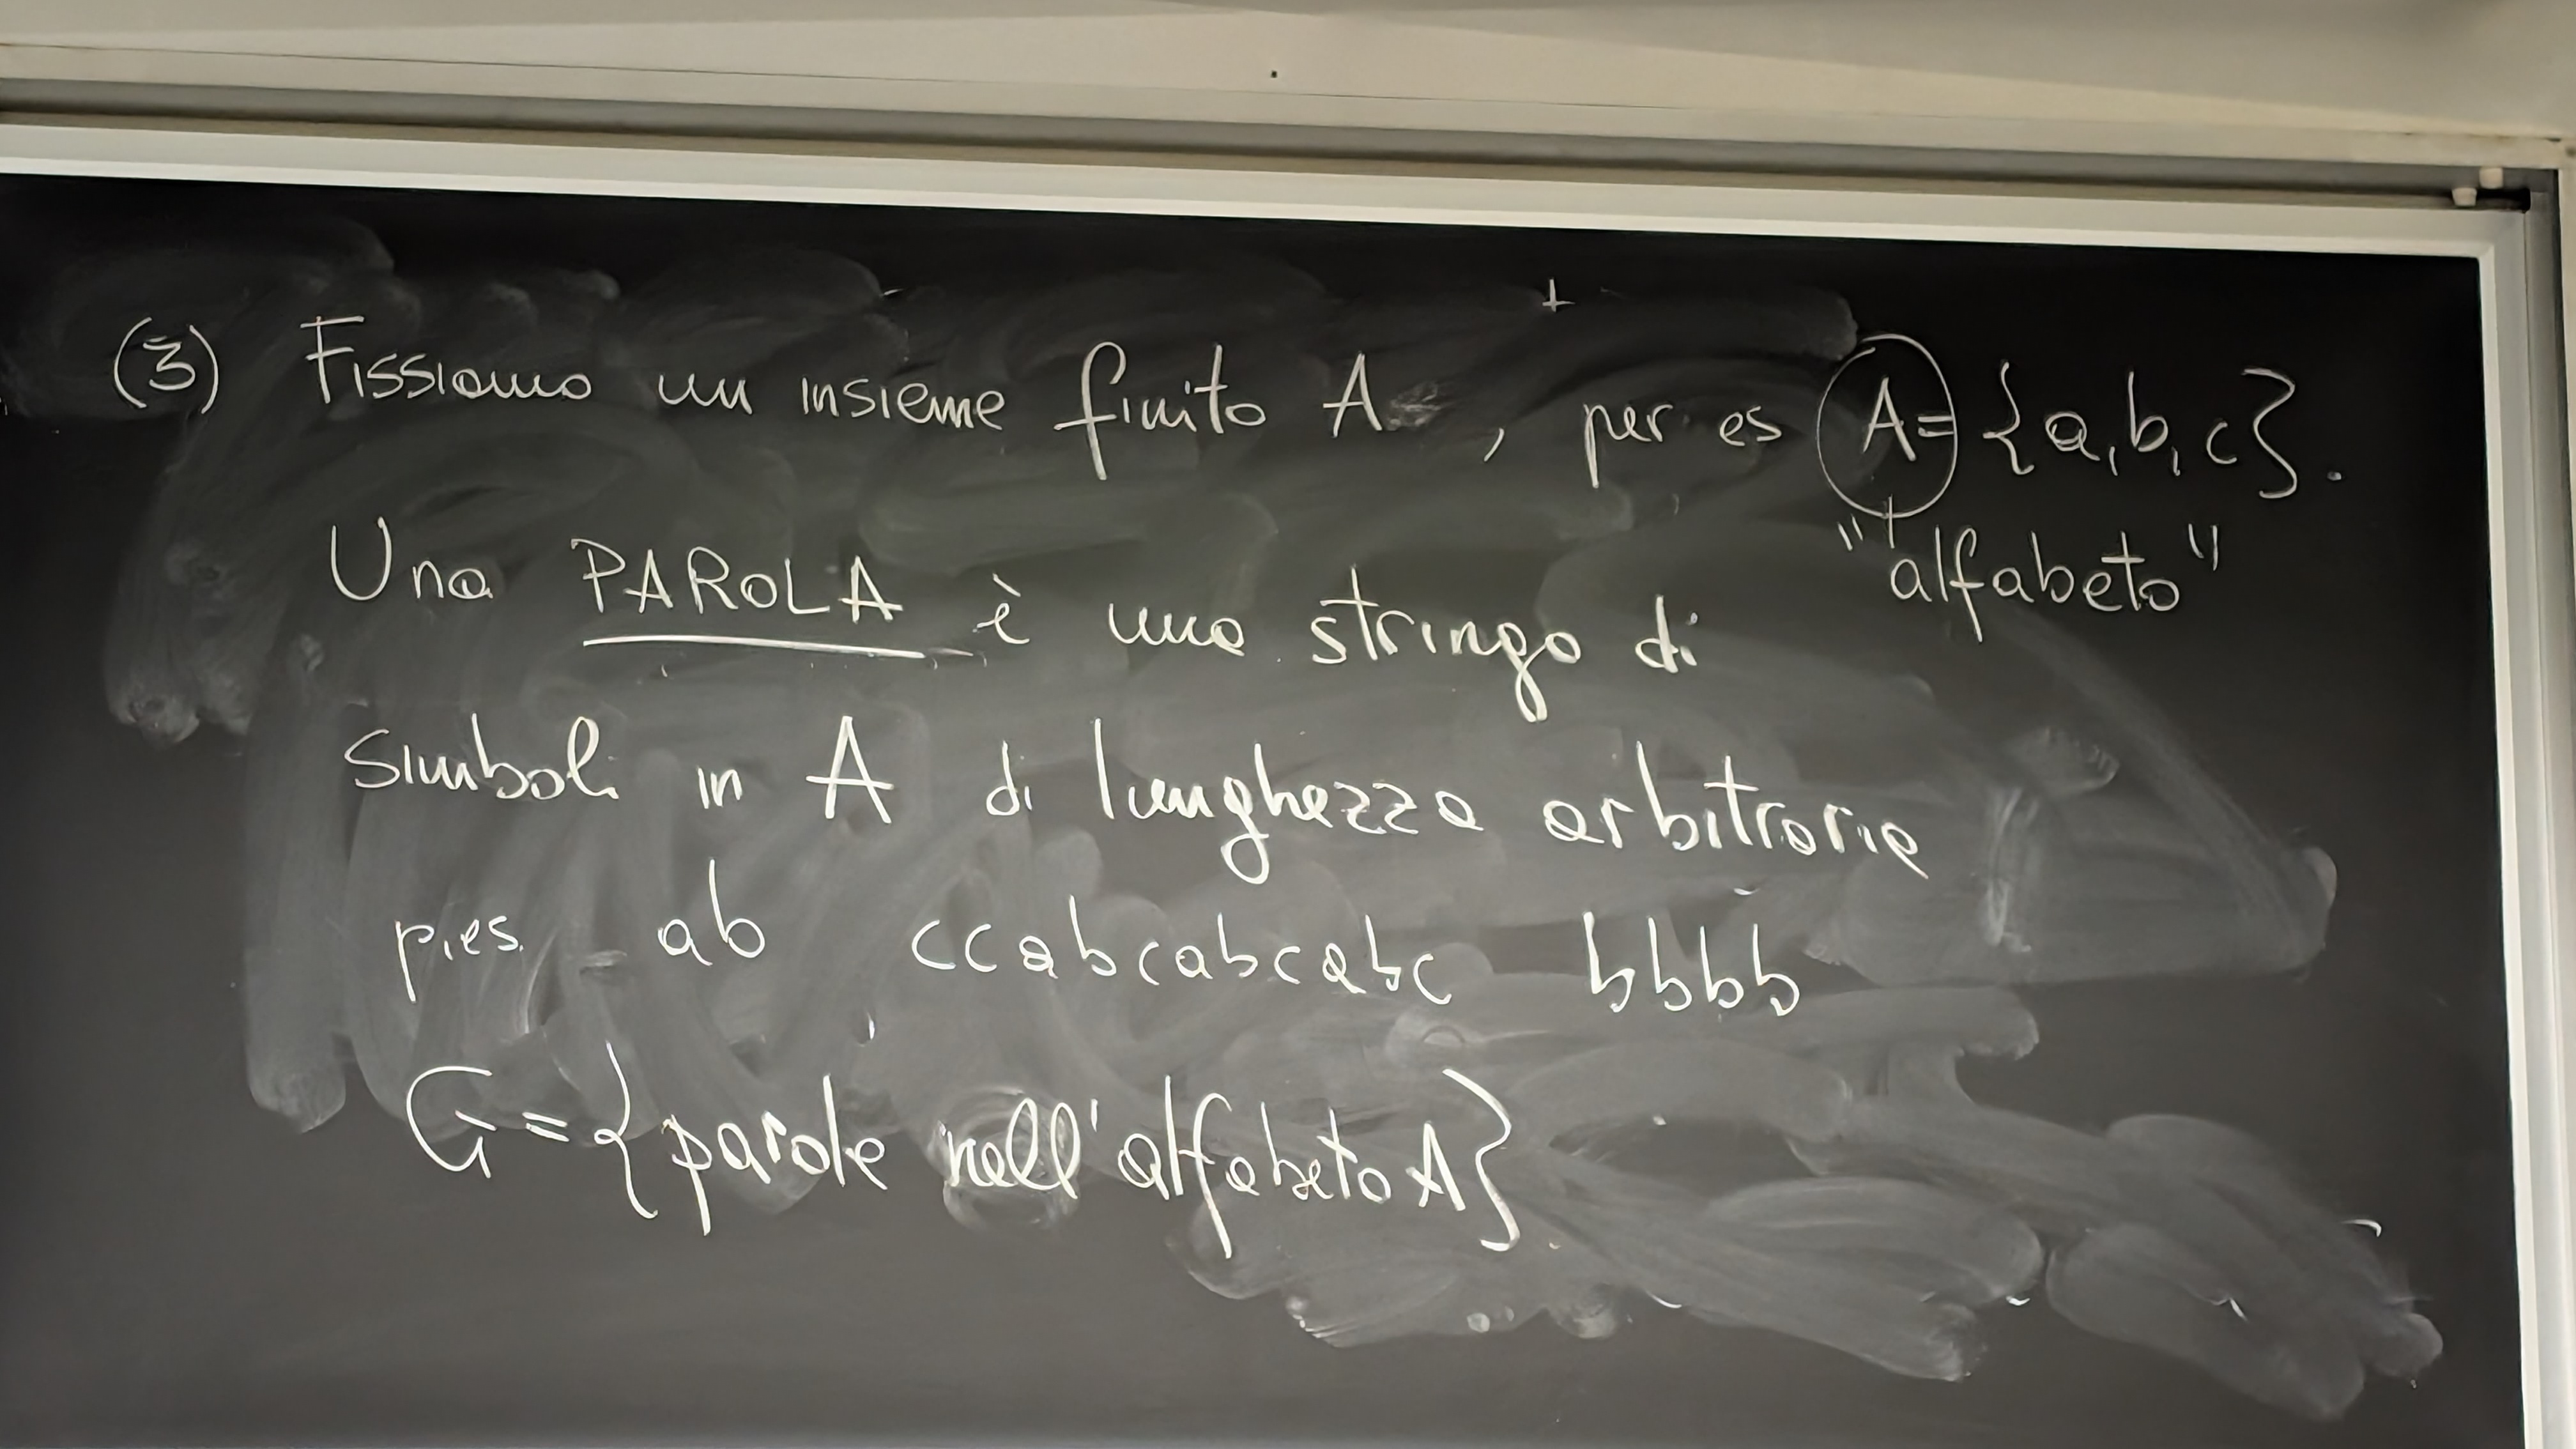 (3) Fissiamo un insieme finito A , per es A= {a,b,c}.
"alfabeto"
Una PAROLA è una stringa di
simboli in A di lunghezza arbitraria
p.es. ab ccabcabcabc bbbb
G={parole nell'alfabeto A}.